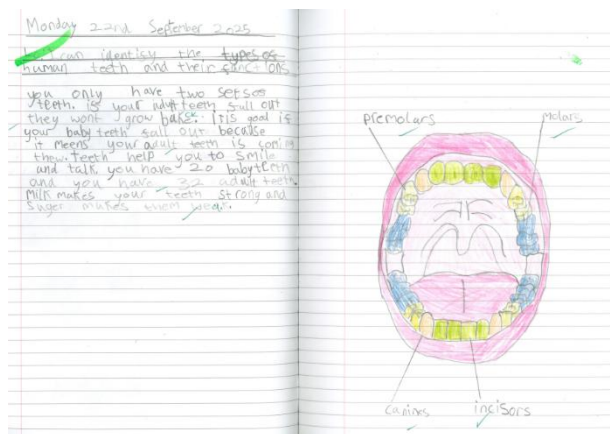 Monday 22nd September 2025
I can identisy the types os
human teeth and their sunctions
you only have two sets os
teeth. is your adult teeth sall out
they wont grow bakse. it is goal is
your baby teeth sall out because
it meens your adult teeth is coming
thew. teeth help you to smile
and talk. you have 20 baby teeth
and you have 32 adult teeth.
Milk makes your teeth strong and
Suger makes them weak.
premolars
molars
canines
incisors